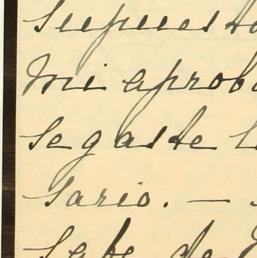 supuesto
mi aprob
segaste l
sario. —
Sabe de